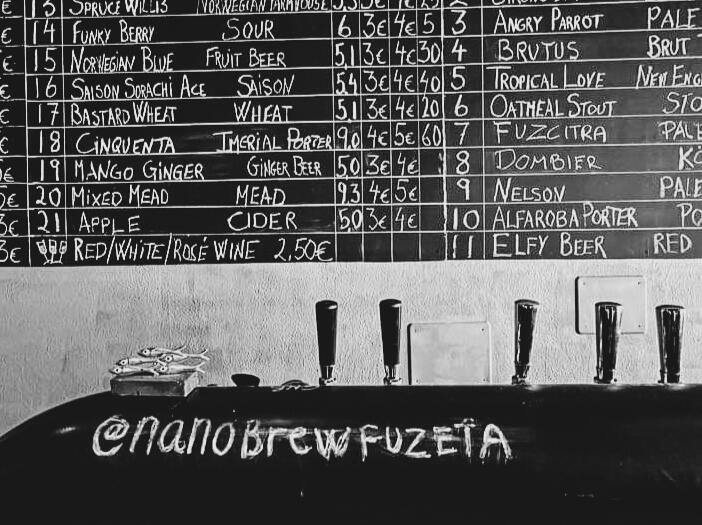 13 SPRUCE WILLIS NORWEGIAN FARMHOUSE
€ 14 FUNKY BERRY SOUR 6 3€ 4€ 5
€ 15 NORWEGIAN BLUE FRUIT BEER 5,1 3€ 4€ 30
€ 16 SAISON SORACHI ACE SAISON 5,4 3€ 4€ 40
€ 17 BASTARD WHEAT WHEAT 5,1 3€ 4€ 20
€ 18 CINQUENTA IMERIAL PORTER 9,0 4€ 5€ 60
€ 19 MANGO GINGER GINGER BEER 5,0 3€ 4€
€ 20 MIXED MEAD MEAD 9,3 4€ 5€
3€ 21 APPLE CIDER 5,0 3€ 4€
3€ RED/WHITE/ROSÉ WINE 2,50€
3 ANGRY PARROT PALE
4 BRUTUS BRUT
5 TROPICAL LOVE NEW ENG
6 OATMEAL STOUT STO
7 FUZCITRA PALE
8 DOMBIER KÖ
9 NELSON PALE
10 ALFAROBA PORTER PO
11 ELFY BEER RED
@nanoBrewFUZETA